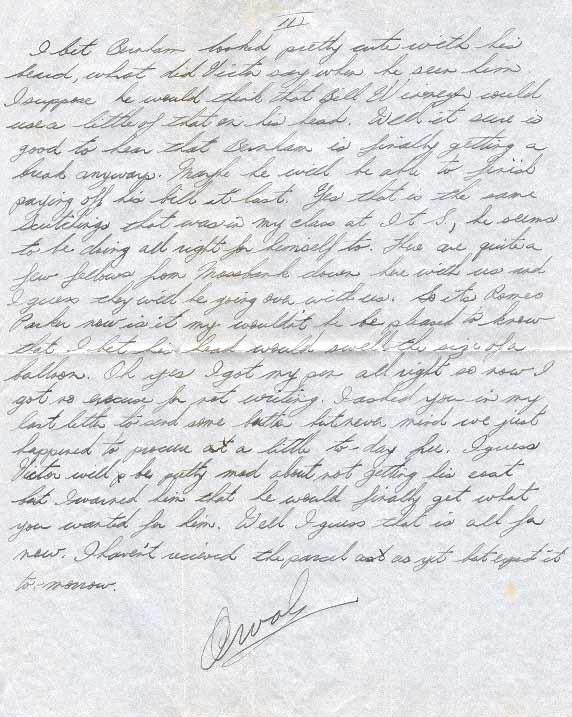 III
I bet Ornham looked pretty cute with his
beard, what did Victor say when he seen him
I suppose he would think that Bill would
use a little of that on his head. Well it sure is
good to hear that Ornham is finally getting a
break anyways. Maybe he will be able to finish
paying off his bill at last. Yes that is the same
Scutchings that was in my class at I.T.S., he seems
to be doing all right for himself to. There are quite a
few fellows from Mossbank down here with us and
I guess they will be going over with us. So its Romeo
Parker now is it my wouldn't he be pleased to know
that I bet his head would swell the size of a
balloon. Oh yes I got my pen all right so now I
got no excuse for not writing. I asked you in my
last letter to send some but never mind we just
happened to procure a little to-day free. I guess
Victor will be pretty mad about not getting his coat
but I warned him that he would finally get what
you wanted for him. Well I guess that is all for
now. I haven't recieved the parcel as yet but expect it
to-morrow.
Orval